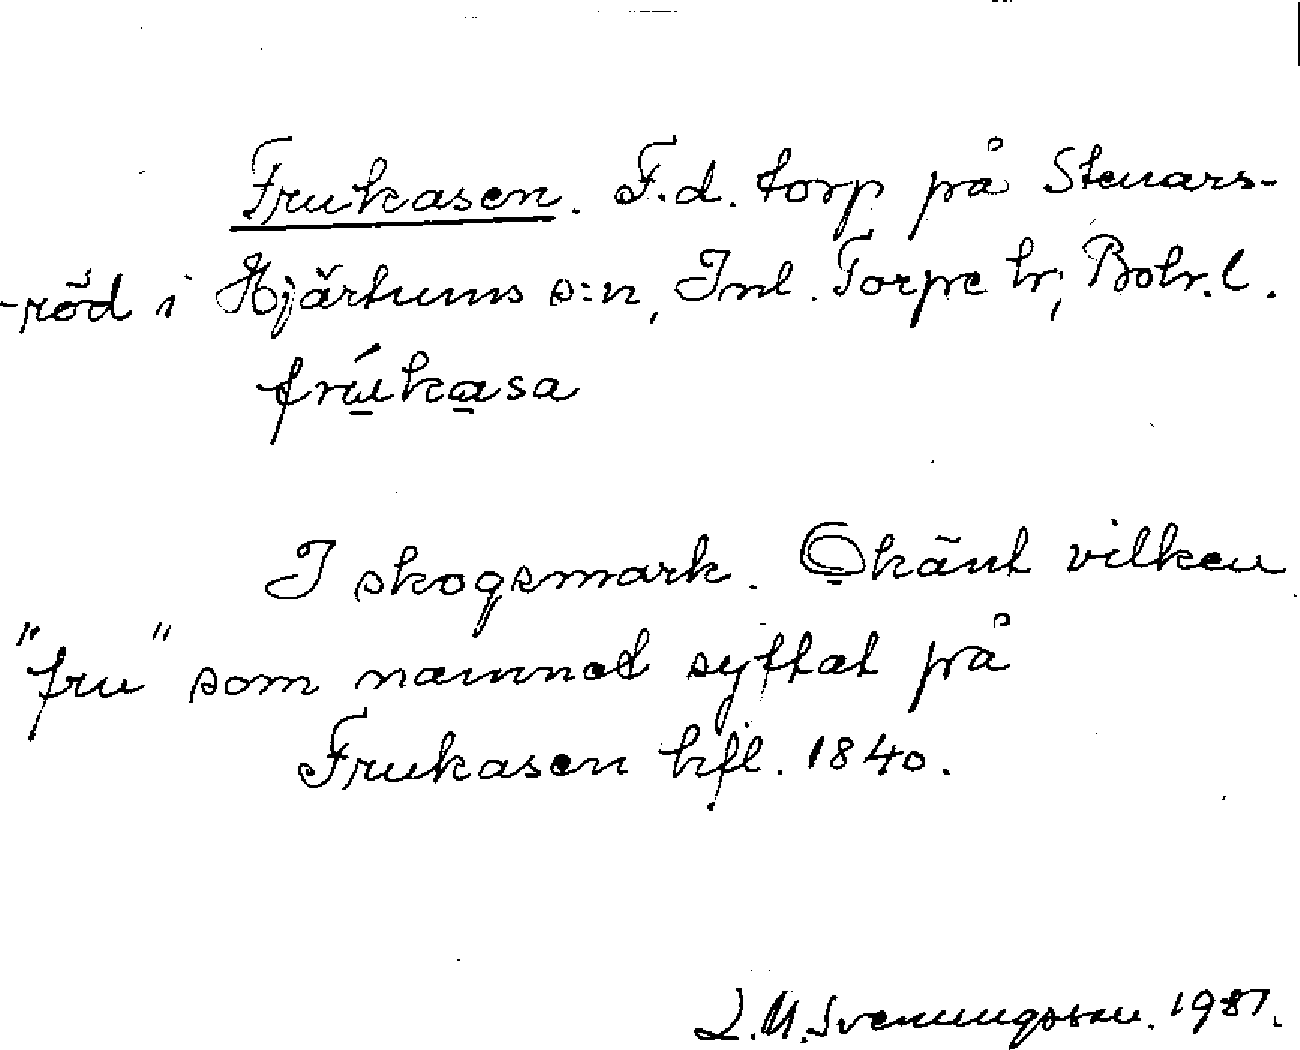 Frukasen. F.d. torp på Stenars-
-röd i Hjärtums s:n, Inl. Torpe hr, Bohr. l.
frúkasa
I skogsmark. Okänt vilken
"fru" som namnet syftat på
Frukasen hfl. 1840.
L.M. Svenungsson. 1981.